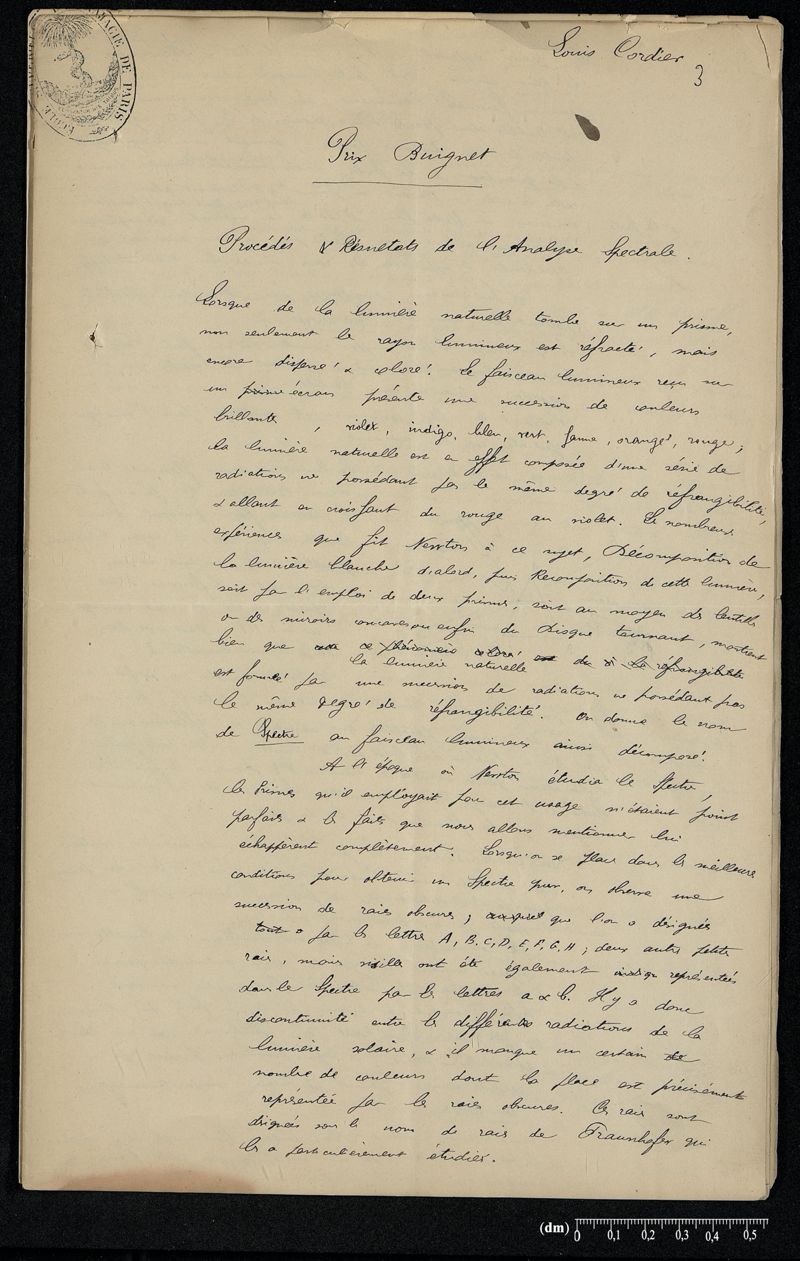 ÉCOLE DE PHARMACIE DE PARIS
Louis Cordier
3
Prix Buignet
Procédés & Résultats de l'Analyse Spectrale.
Lorsque de la lumière naturelle tombe sur un prisme,
non seulement le rayon lumineux est réfracté, mais
encore dispersé & coloré. Le faisceau lumineux reçu sur
un prisme écran présente une succession de couleurs
brillante, violet, indigo, bleu, vert, jaune, orangé, rouge;
la lumière naturelle est en effet composée d'une série de
radiations ne possédant pas le même degré de réfrangibilité,
& allant en croissant du rouge au violet. Les nombreuses
expériences que fit Newton à ce sujet, Décomposition de
la lumière blanche d'abord, puis Recomposition de cette lumière,
soit par l'emploi de deux prismes, soit au moyen de lentilles
ou des miroirs concaves ou enfin du Disque tournant, montrent
bien que ce phénomène coloré est du à la réfrangibilité
la lumière naturelle
est formée par une succession de radiations ne possédant pas
le même degré de réfrangibilité. On donne le nom
de Spectre au faisceau lumineux ainsi décomposé.
A l'époque où Newton étudia le Spectre,
les Prismes qu'il employait pour cet usage n'étaient point
parfaits & les faits que nous allons mentionner lui
échappèrent complètement. Lorsqu'on se place dans les meilleures
conditions pour obtenir un Spectre pur, on observe une
succession de raies obscures; que l'on a désignés
par les lettres A, B, C, D, E, F, G, H; deux autres petites
raies, mais visibles ont été également représentées
dans le Spectre par les lettres a & b. Il y a donc
discontinuité entre les différentes radiations de la
lumière solaire, & il manque un certain
nombre de couleurs dont la place est précisément
représentée par les raies obscures. Ces raies sont
désignées sous le nom de raies de Fraunhofer qui
les a particulièrement étudiés.
(dm) 0 0,1 0,2 0,3 0,4 0,5